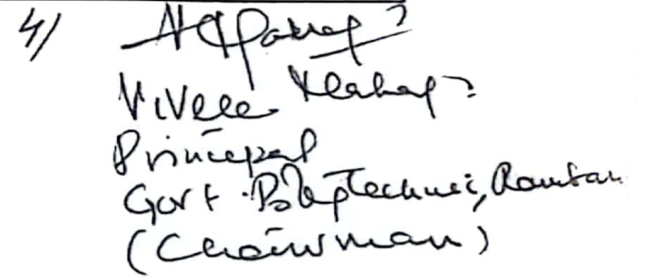 4)
Vivek
Principal
Govt. Polytechnic, Ramban
(Chairman)